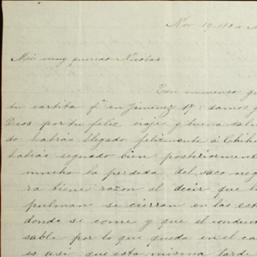 Nov 19
Mi muy querido Nicolas
Con inmenso
tu cartita qe en Jimenez 17: damos
Dios por tu feliz viaje y buena
do habias llegado felizmente á Chihu
habias seguido bien posteriorment
mucho la perdida del saco neg
ra tiene razon al decir que
pulman se cierran en las est
donde se come y que el conduc
sable por lo que queda en el ca
es asi que esta misma tarde